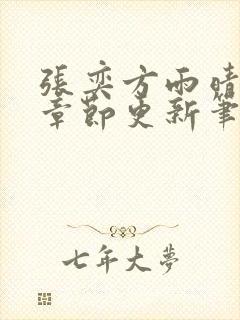 張奕方雨晴
章節更新筆
七年大夢